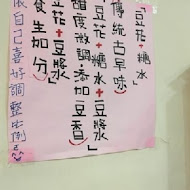 「豆花+糖水」
傳統古早味
豆花+糖水+豆漿
度微調添加豆香
豆花+豆漿
生加分
依自己喜好調整比例